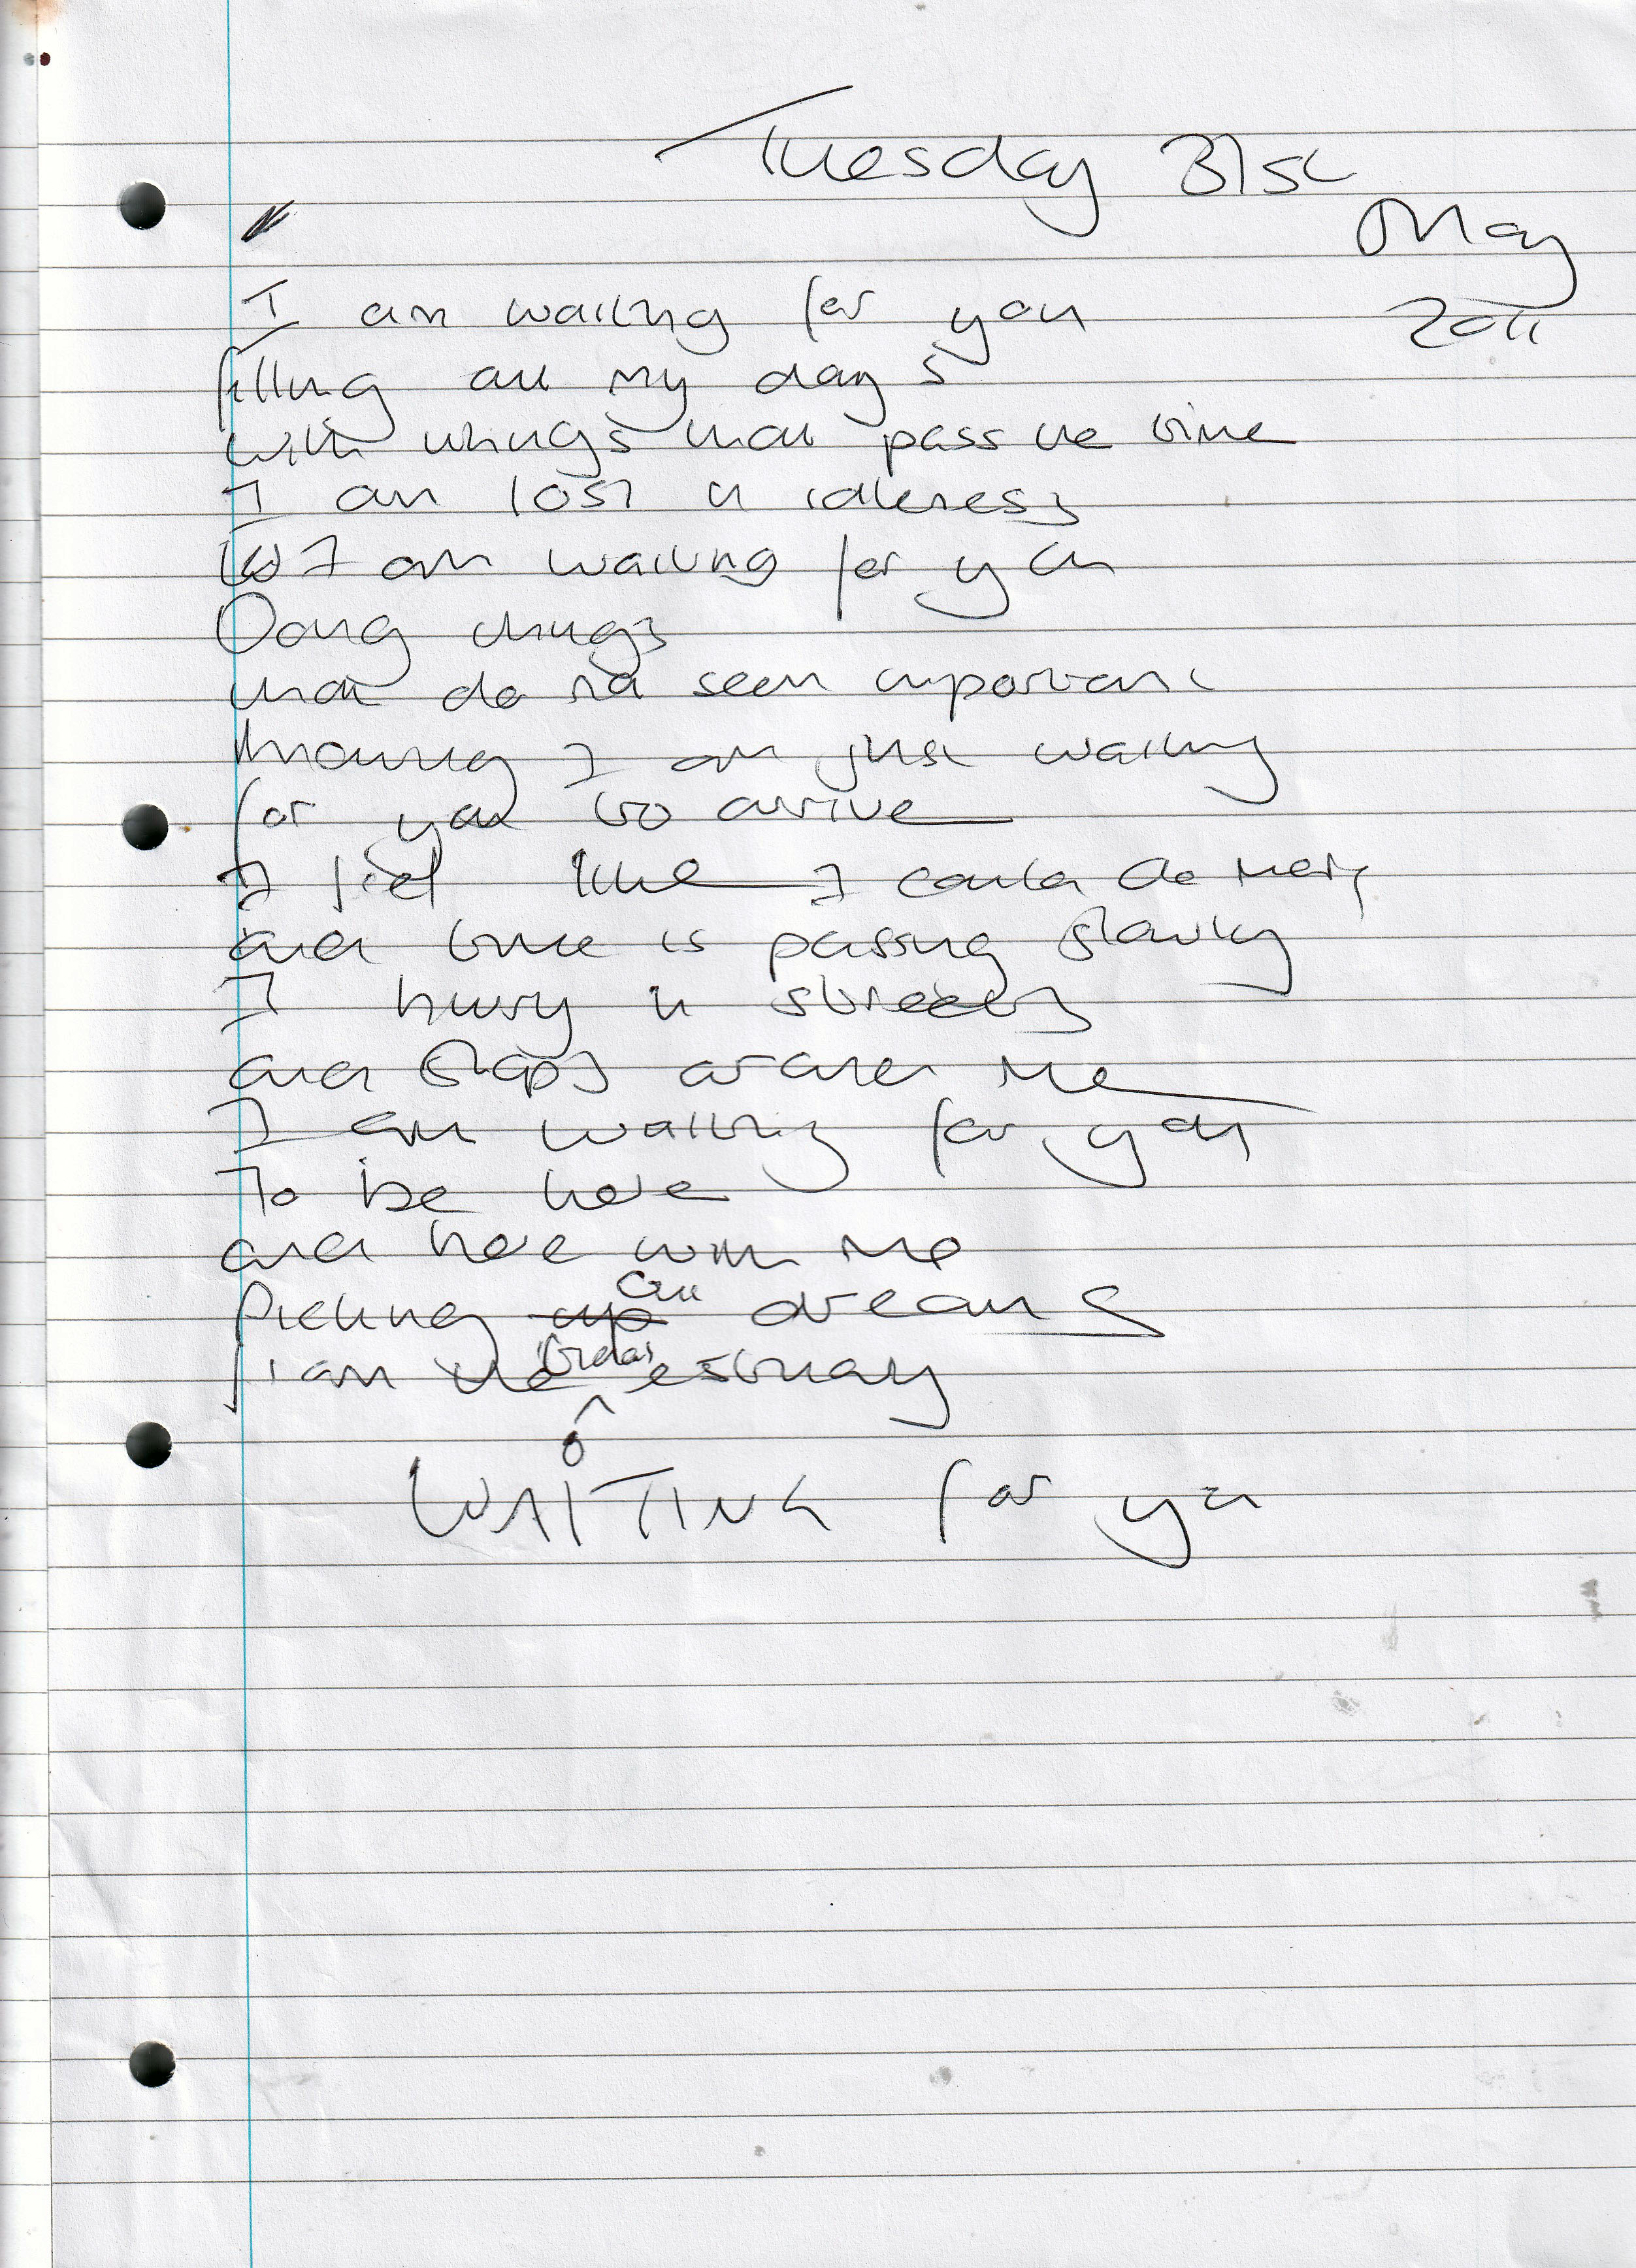 Tuesday 31st
May
2011
I am waiting for you
filling all my days
with things that pass the time
I am lost in idleness
I am waiting for you
Doing things
that do not seem important
knowing I am just waiting
for you to arrive
I feel like I could do more,
and time is passing slowly
I hurry in streets
and shops around me
I am waiting for you
To be here
and here with me
Picking up our dreams
from the tidal estuary
WAITING for you